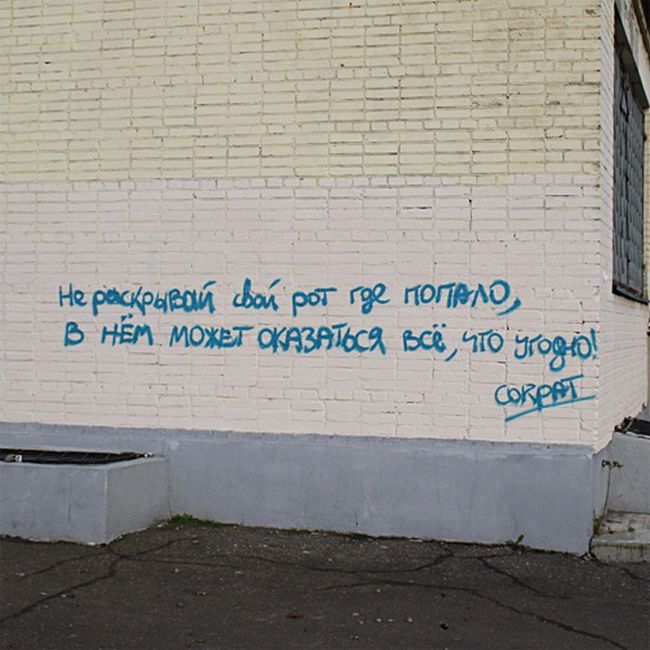 Не раскрывай свой рот где попало,
в нём может оказаться всё, что угодно!
Сократ